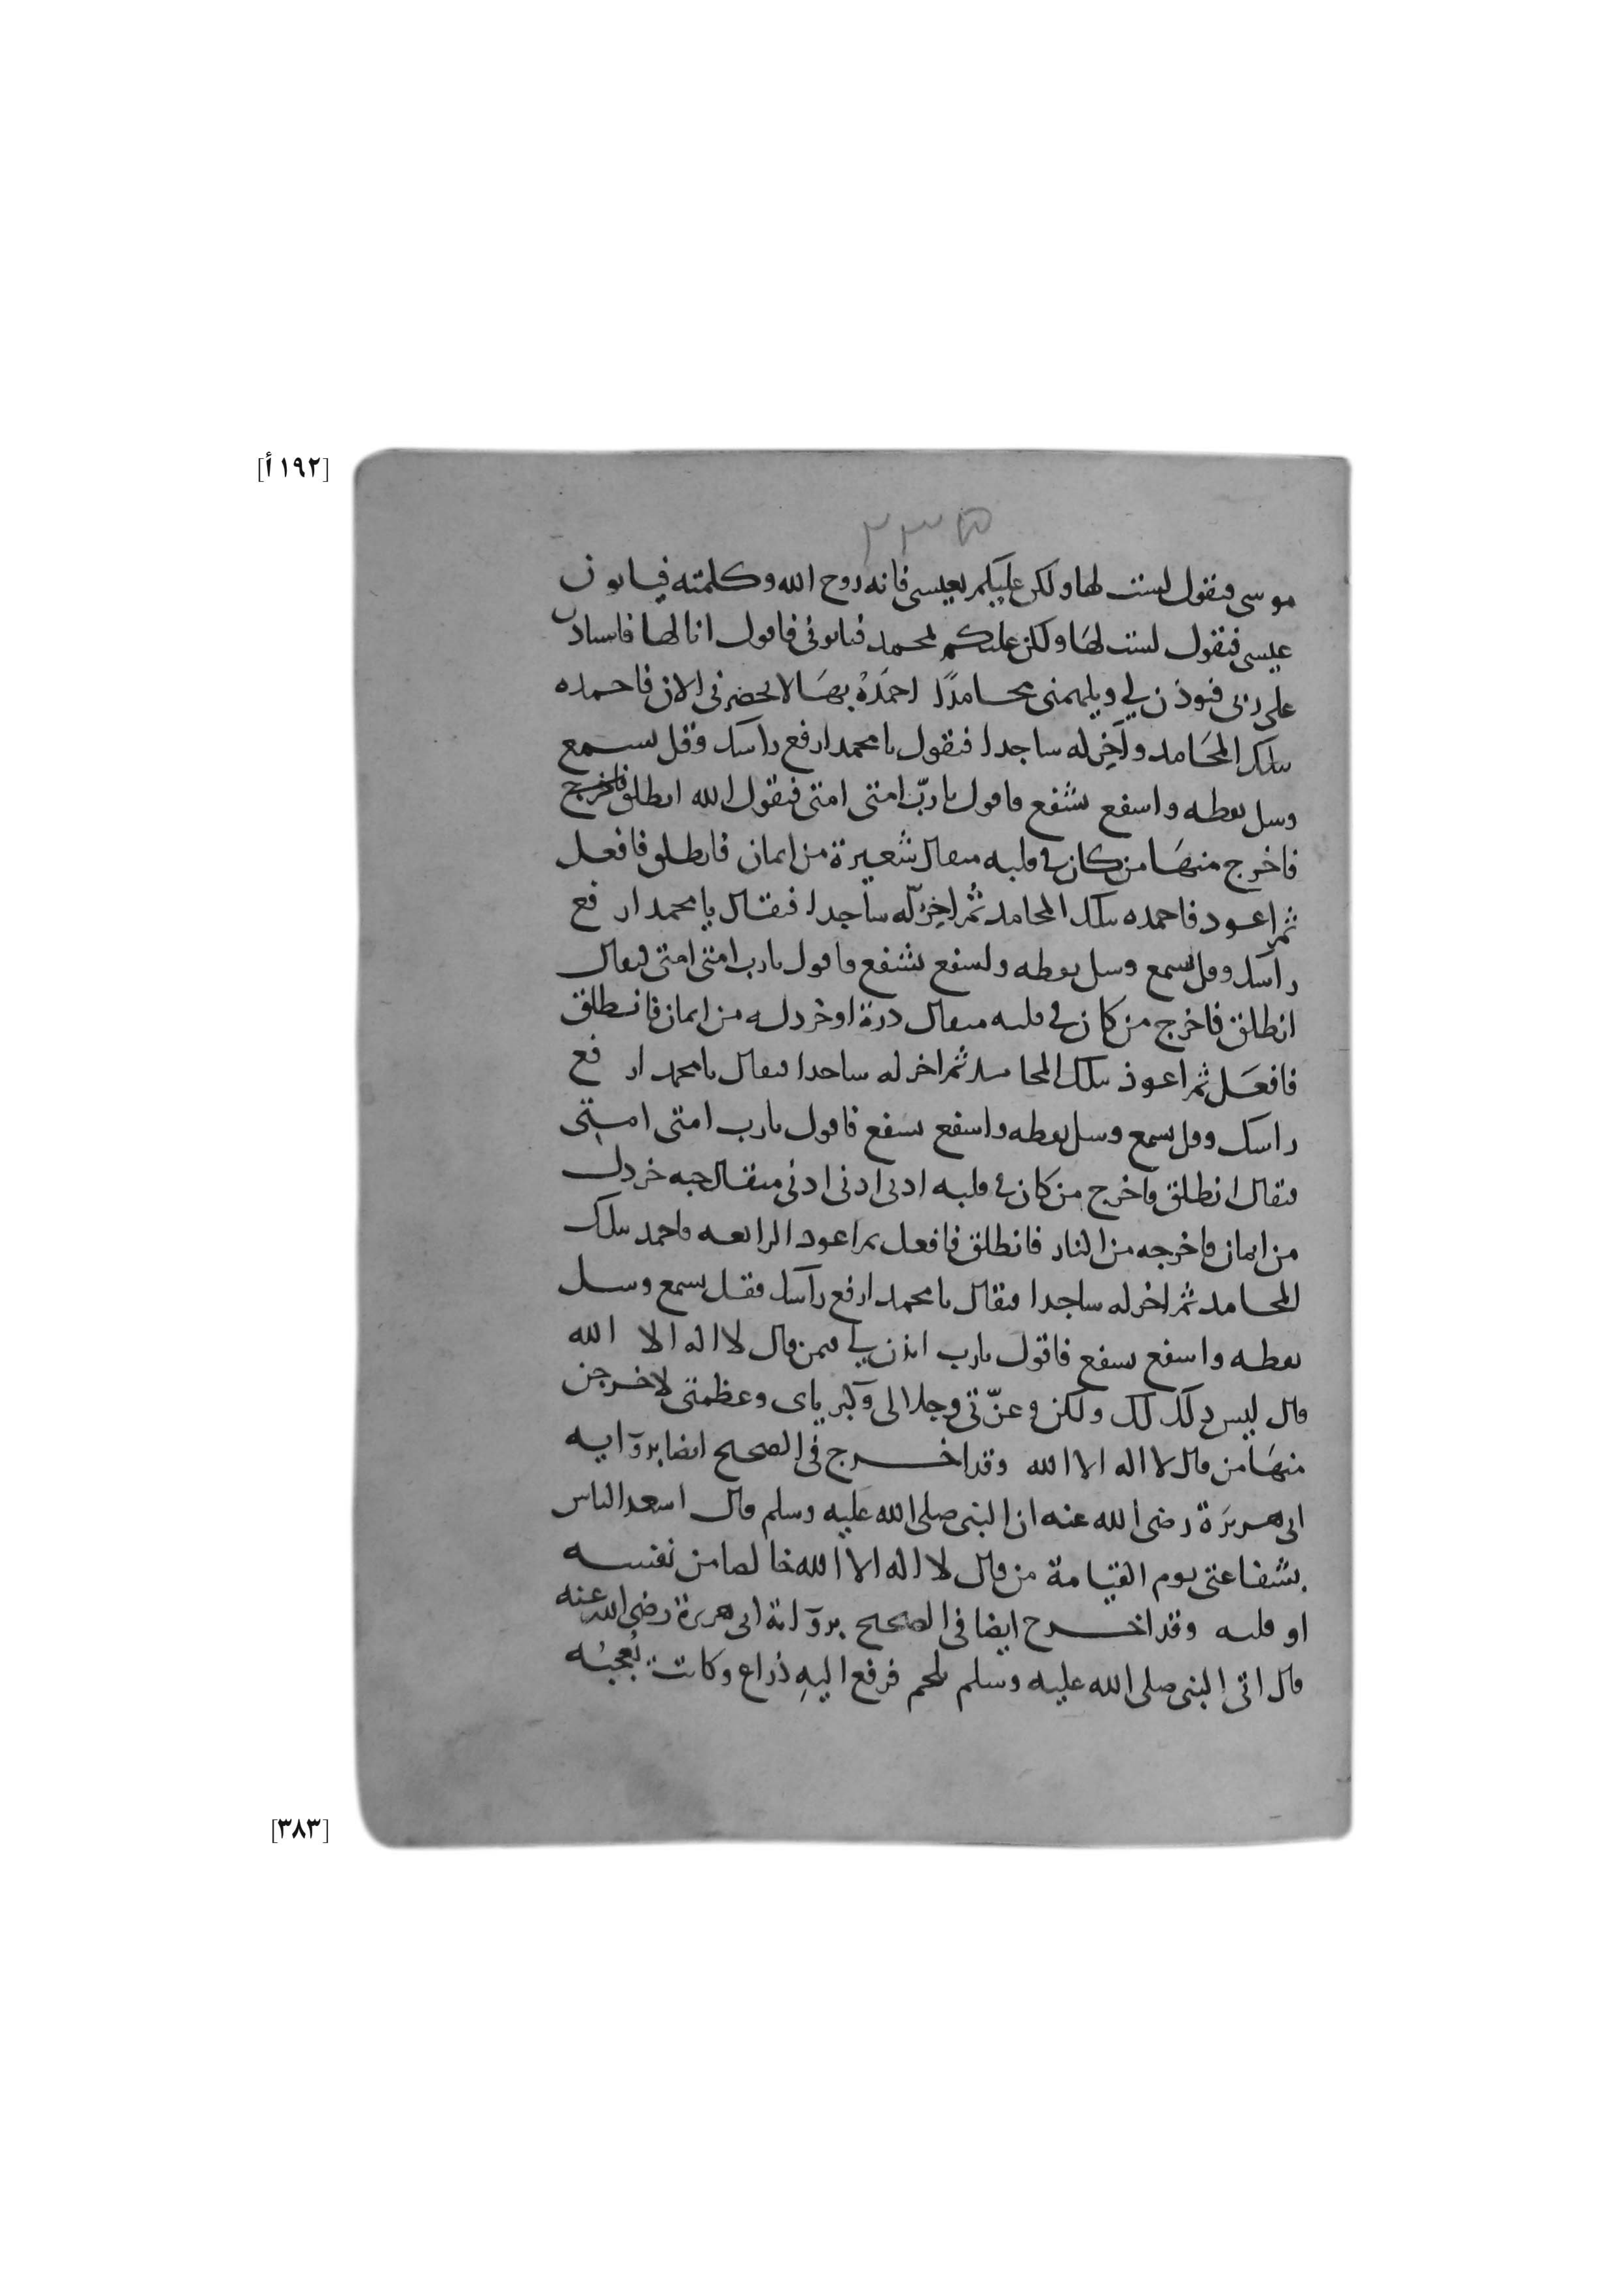 [١٩٢ أ]
٢٣٥
موسى فيقول لست لها ولكن عليكم بعيسى فانه روح الله وكلمته فياتون
عيسى فيقول لست لها ولكن عليكم بمحمد فياتونى فاقول انا لها فاستاذن
على ربى فيوذن لي ويلهمنى محامدًا احمَدُهُ بهَا لا تحضرنى الان فاحمده
بتلك المحَامد وأخِر له ساجدا فيقول يا محمد ارفع راسك وقل يسمع
وسل تعطه واشفع تشفع فاقول يا ربّ امتى امتى فيقول الله انطلق فاخرج
فاخرج منهَا من كان في قلبه مثقال شعيرة من ايمان فانطلق فافعل
ثم اعود فاحمده بتلك المحامد ثُم اخِرّ له ساجدا فيقال يا محمد ارفع
رأسك وقل يسمع وسل تعطه واشفع تشفع فاقول يا رب امتى امتى فيقال
انطلق فاخرج من كان في قلبه مثقال ذرة او خردله من ايمان فانطلق
فافعَل ثم اعوذ بتلك المحامد ثُم اخر له ساجدا فيقال يا محمد ارفع
راسك وقل يسمع وسل تعطه واشفع تشفع فاقول يا رب امتى امتى
فيقال انطلق فاخرج من كان في قلبه ادنى ادنى ادنى مثقال حبه خردل
من ايمان فاخرجه من النار فانطلق فافعل ثم اعود الرابعه فاحمد بتلك
المحامد ثم اخر له ساجدا فيقال يا محمد ارفع رأسك فقل يسمع وسل
تعطه واشفع تشفع فاقول يا رب ائذن لي فيمن قال لا اله الا الله
قال ليس ذلك لك ولكن وعزّتى وجلالى وكبرياى وعظمتى لاخرجن
منهَا من قال لا اله الا الله وقد اخرج فى الصحيح ايضا بروآيه
ابى هريرَة رضى الله عنه ان النبى صلى الله عليه وسلم قال اسعد الناس
بشفاعتى يوم القيامة من قال لا اله الا الله خالصا من نفسه
او قلبه وقد اخرج ايضا فى الصحيح بروآية ابى هريرة رضى الله عنه
قال اتى النبى صلى الله عليه وسلم بلحم فرفع اليهِ ذراع وكانت تُعجبُه
[٣٨٣]